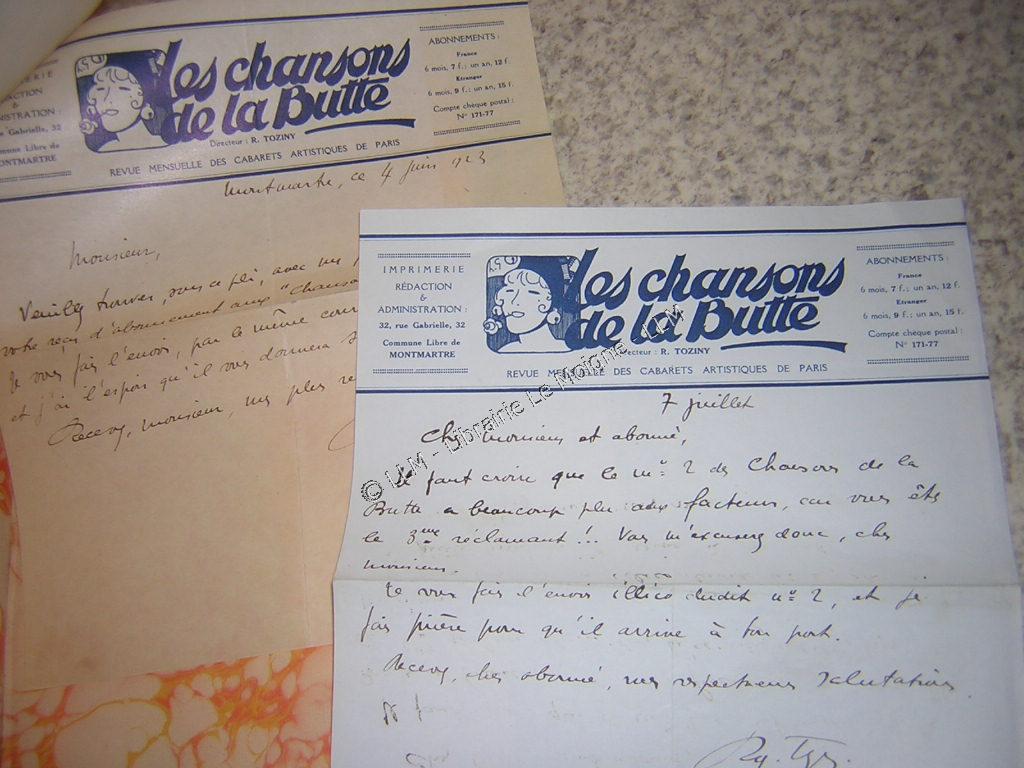 les chansons
de la Butte
Directeur : R. TOZINY
REVUE MENSUELLE DES CABARETS ARTISTIQUES DE PARIS
ERIE
DACTION
&
ADMINISTRATION :
Gabrielle, 32
Commune Libre de
MONTMARTRE
ABONNEMENTS :
France
6 mois, 7 f. ; un an, 12 f.
Etranger
6 mois, 9 f. ; un an, 15 f.
Compte chèque postal :
N° 171-77
Montmartre, ce 4 juin 1923
Monsieur,
Veuillez trouver, sous ce pli, avec un
votre reçu d'abonnement aux "Chanso
Je vous fais l'envoi, par le même cour
et j'ai l'espoir qu'il vous donnera s
Recevez, monsieur, mes plus re
IMPRIMERIE
RÉDACTION
&
ADMINISTRATION :
32, rue Gabrielle, 32
Commune Libre de
MONTMARTRE
les chansons
de la Butte
recteur : R. TOZINY
REVUE MENSUELLE DES CABARETS ARTISTIQUES DE PARIS
ABONNEMENTS :
France
6 mois, 7 f. ; un an, 12 f.
Etranger
6 mois, 9 f. ; un an, 15 f.
Compte chèque postal :
N° 171-77
7 juillet
Cher monsieur et abonné,
Il faut croire que le n° 2 des Chansons de la
Butte a beaucoup plu aux facteurs, car vous êtes
le 3me réclamant !! Vous m'excuserez donc, cher
monsieur.
Je vous fais l'envoi illico dudit n° 2, et je
fais prière pour qu'il arrive à bon port.
Recevez, cher abonné, mes respectueuses salutations.
© LLM - Librairie Le Moigne LLM